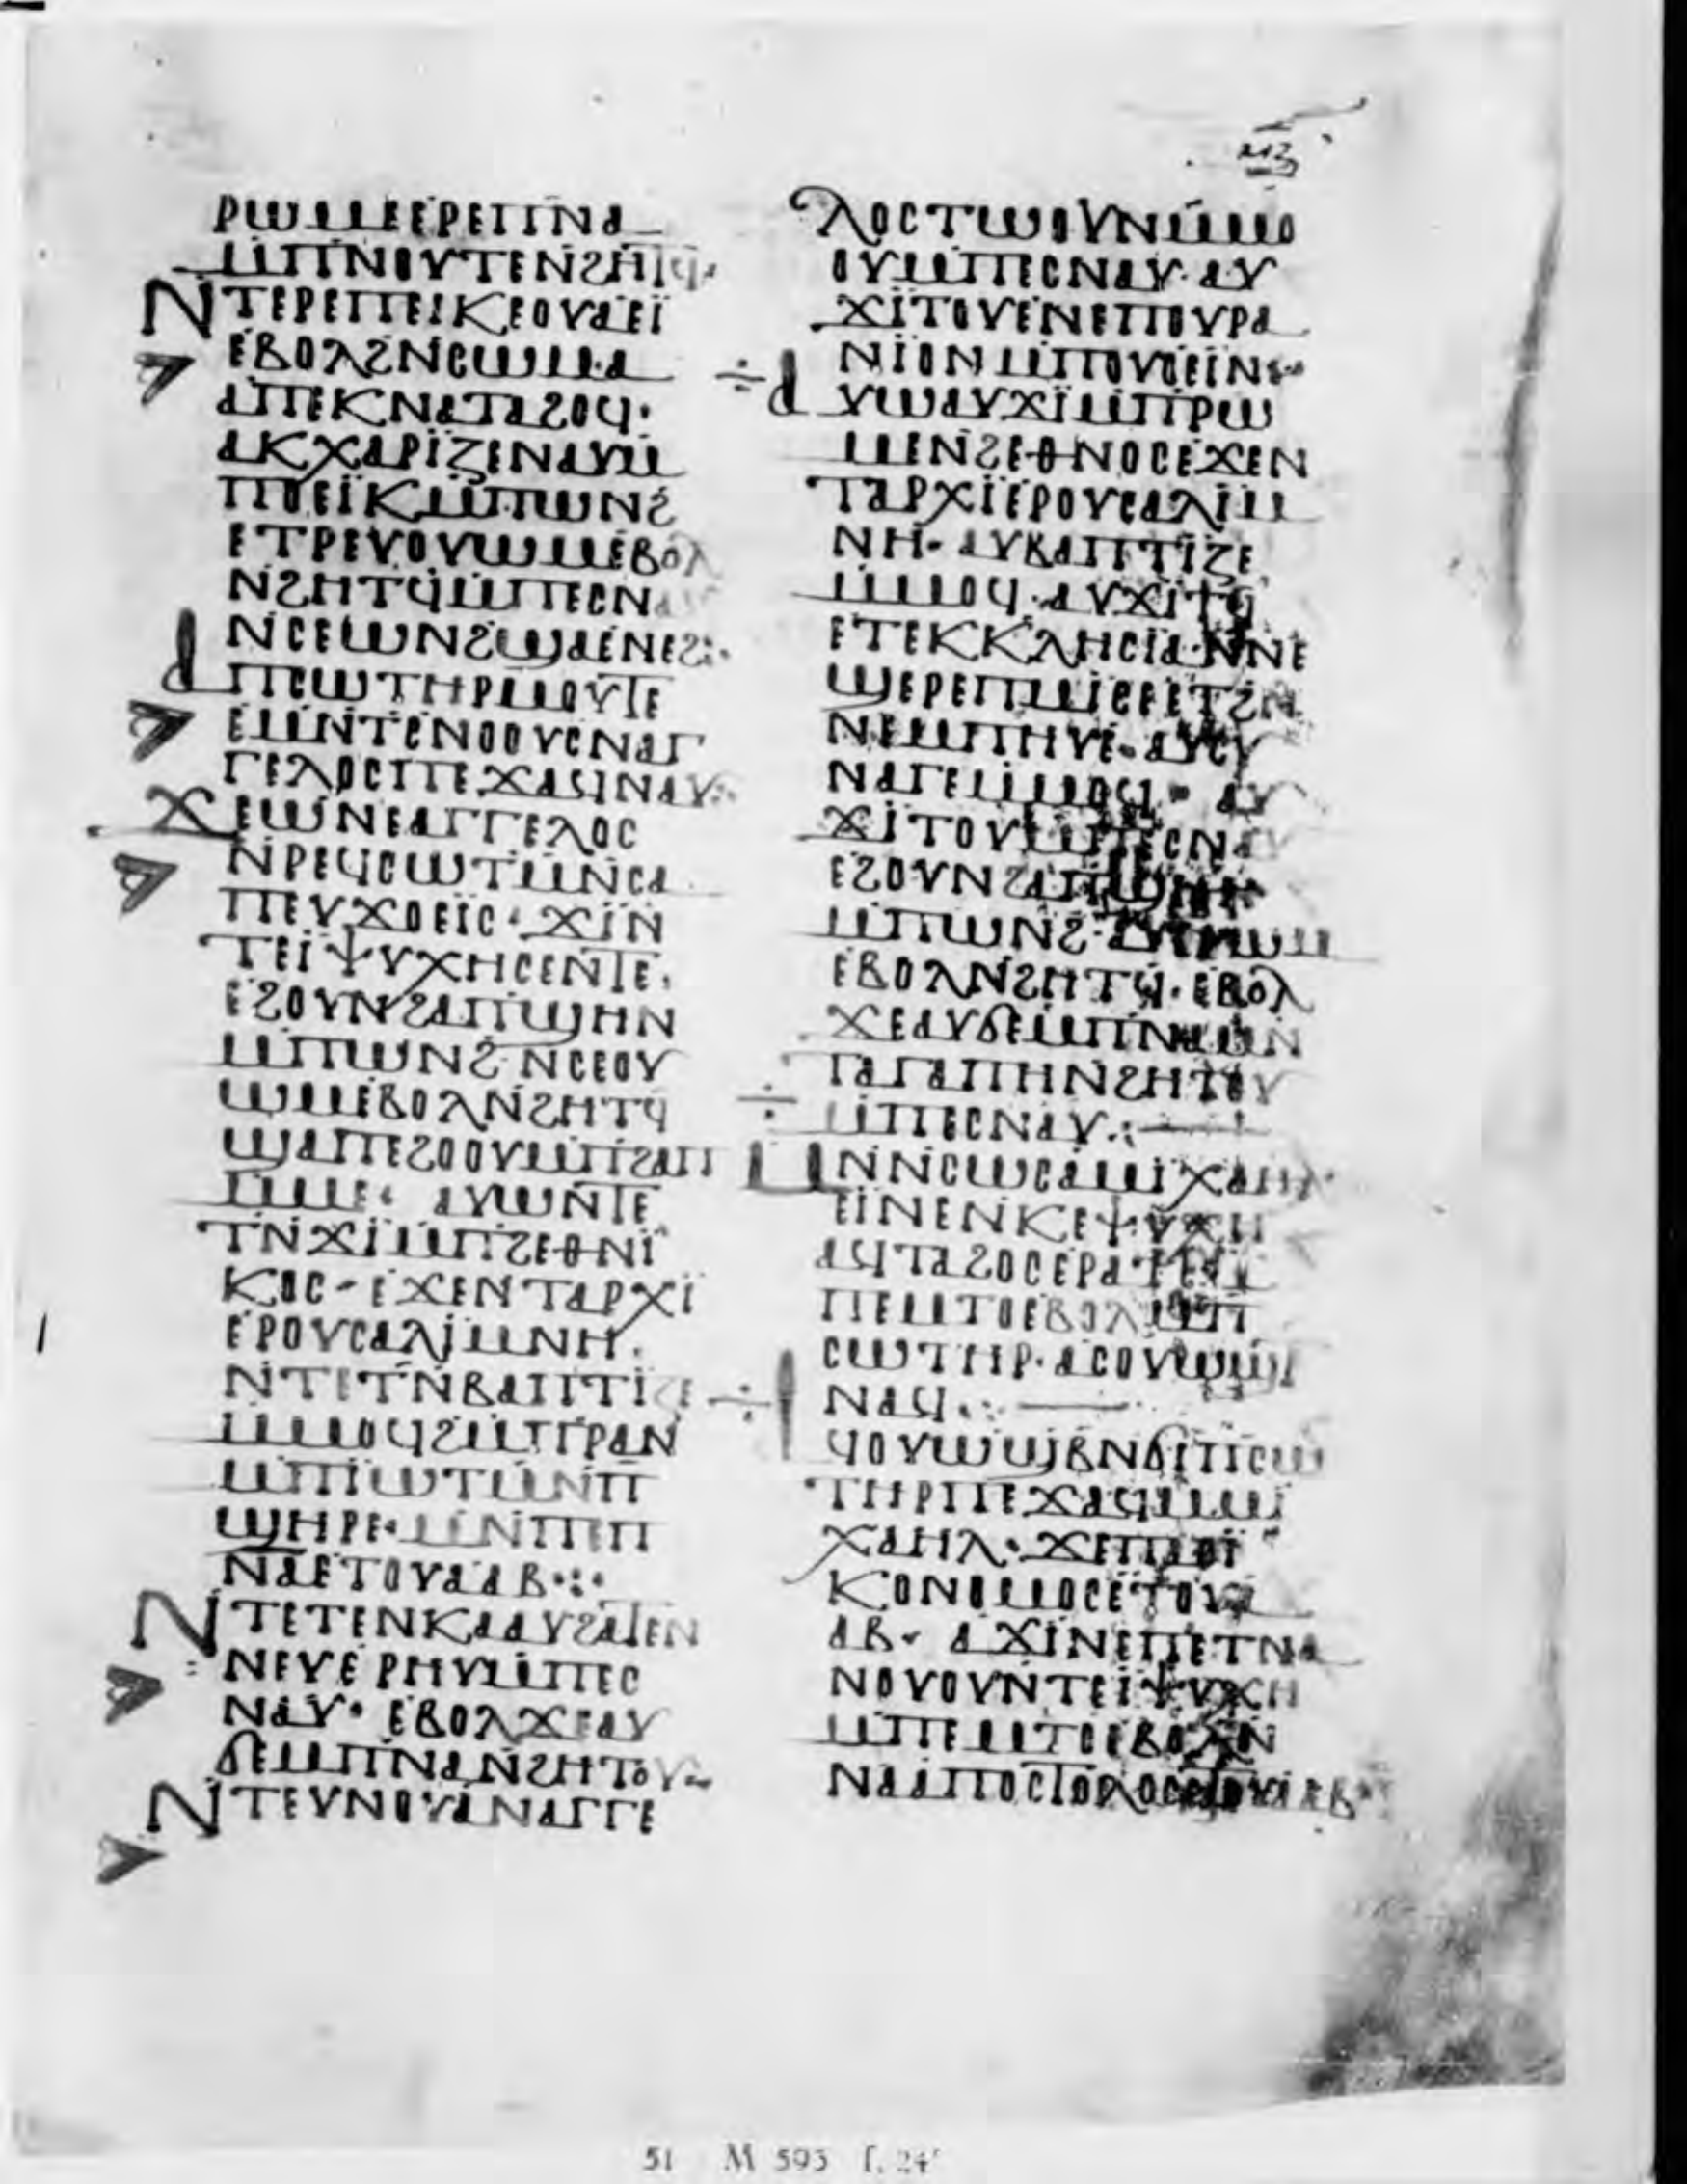 ⲙⲍ
ⲣⲱⲙⲉⲉⲣⲉⲡⲡⲛⲁ
ⲙⲡⲛⲟⲩⲧⲉⲛϩⲏⲧϥ·
ⲛⲧⲉⲣⲉⲡⲉⲓⲕⲉⲟⲩⲁⲉⲓ
ⲉⲃⲟⲗϩⲛⲥⲱⲙⲁ
ⲁⲡⲉⲕⲛⲁⲧⲁϩⲟϥ·
ⲁⲕⲭⲁⲣⲓⲍⲉⲛⲁⲩⲙ
ⲡⲟⲉⲓⲕⲙⲡⲱⲛϩ
ⲉⲧⲣⲉⲩⲟⲩⲱⲙⲉⲃⲟⲗ
ⲛϩⲏⲧϥⲙⲡⲉⲥⲛⲁⲩ
ⲛⲥⲉⲱⲛϩϣⲁⲉⲛⲉϩ:·
ⲁⲡⲥⲱⲧⲏⲣⲙⲟⲩⲧⲉ
ⲉⲙⲛⲧⲥⲛⲟⲟⲩⲥⲛⲁⲅ
ⲅⲉⲗⲟⲥⲡⲉϫⲁϥⲛⲁⲩ:·
ϫⲉⲱⲛⲉⲁⲅⲅⲉⲗⲟⲥ
ⲛⲣⲉϥⲥⲱⲧⲙⲛⲥⲁ
ⲡⲉⲩϫⲟⲉⲓⲥ· ϫⲓⲛ
ⲧⲉⲓⲯⲩⲭⲏⲥⲉⲛⲧⲉ·
ⲉϩⲟⲩⲛϩⲁⲡϣⲏⲛ
ⲙⲡⲱⲛϩ·ⲛⲥⲉⲟⲩ
ⲱⲙⲉⲃⲟⲗⲛϩⲏⲧϥ
ϣⲁⲡⲉϩⲟⲟⲩⲙⲡϩⲁⲡ
ⲙⲙⲉ· ⲁⲩⲱⲛⲧⲉ
ⲧⲛϫⲓⲙⲡϩⲉⲑⲛⲓ
ⲕⲟⲥ· ⲉϫⲉⲛⲧⲁⲣⲭⲓ
ⲉⲣⲟⲩⲥⲁⲗⲓⲙⲛⲏ·
ⲛⲧⲉⲧⲛⲃⲁⲡⲧⲓⲍⲉ
ⲙⲙⲟϥϩⲙⲡⲣⲁⲛ
ⲙⲡⲓⲱⲧⲙⲛⲡ
ϣⲏⲣⲉ·ⲙⲛⲡⲉⲡ
ⲛⲁⲉⲧⲟⲩⲁⲁⲃ·:·
ⲛⲧⲉⲧⲉⲛⲕⲁⲁⲩϩⲁⲧⲉⲛ
ⲛⲉⲩⲉⲣⲏⲩⲙⲡⲉⲥ
ⲛⲁⲩ· ⲉⲃⲟⲗϫⲉⲁⲩ
ϭⲉⲙⲡⲛⲁⲛϩⲏⲧⲟⲩ·
ⲛⲧⲉⲩⲛⲟⲩⲁⲛⲁⲅⲅⲉ
ⲗⲟⲥⲧⲱⲟⲩⲛⲙⲙⲟ
ⲟⲩⲙⲡⲉⲥⲛⲁⲩ·ⲁⲩ
ϫⲓⲧⲟⲩⲉⲛⲉⲡⲟⲩⲣⲁ
ⲛⲓⲟⲛⲙⲡⲟⲩⲟⲉⲓⲛ·
ⲁⲩⲱⲁⲩϫⲓⲙⲡⲣⲱ
ⲙⲉⲛϩⲉⲑⲛⲟⲥⲉϫⲉⲛ
ⲧⲁⲣⲭⲓⲉⲣⲟⲩⲥⲁⲗⲓⲙ
ⲛⲏ· ⲁⲩⲃⲁⲡⲧⲓⲍⲉ
ⲙⲙⲟϥ·ⲁⲩϫⲓⲧϥ
ⲉⲧⲉⲕⲕⲗⲏⲥⲓⲁ·ⲛⲛⲉ
ϣⲉⲣⲉⲡⲙⲓⲥⲉⲉⲧϩⲛ
ⲛⲉⲙⲡⲏⲩⲉ·ⲁⲩⲥⲩ
ⲛⲁⲅⲉⲙⲙⲟϥ· ⲁⲩ
ϫⲓⲧⲟⲩⲙⲡⲉⲥⲛⲁⲩ
ⲉϩⲟⲩⲛϩⲁⲡϣⲏⲛ
ⲙⲡⲱⲛϩ·ⲁⲩⲟⲩⲱⲙ
ⲉⲃⲟⲗⲛϩⲏⲧϥ·ⲉⲃⲟⲗ
ϫⲉⲁⲩϭⲉⲙⲡⲛⲁⲙⲛ
ⲧⲁⲅⲁⲡⲏⲛϩⲏⲧⲟⲩ
ⲙⲡⲉⲥⲛⲁⲩ·:
ⲙⲛⲛⲥⲱⲥⲁⲙⲓⲭⲁⲏⲗ
ⲉⲓⲛⲉⲛⲕⲉⲯⲩⲭⲏ
ⲁϥⲧⲁϩⲟⲥⲉⲣⲁⲧⲥⲙ
ⲡⲉⲙⲧⲟⲉⲃⲟⲗⲙⲡ
ⲥⲱⲧⲏⲣ·ⲁⲥⲟⲩⲱϣⲧ
ⲛⲁϥ·:
ⲁϥⲟⲩⲱϣⲃⲛϭⲓⲡⲥⲱ
ⲧⲏⲣⲡⲉϫⲁϥⲙⲙⲓ
ⲭⲁⲏⲗ· ϫⲉⲡⲁⲟⲓ
ⲕⲟⲛⲟⲙⲟⲥⲉⲧⲟⲩⲁ
ⲁⲃ· ⲁϫⲓⲛⲉⲡⲉⲧⲛⲁ
ⲛⲟⲩⲟⲩⲛⲧⲉⲓⲯⲩⲭⲏ
ⲙⲡⲉⲙⲧⲟⲉⲃⲟⲗⲛ
ⲛⲁⲁⲡⲟⲥⲧⲟⲗⲟⲥⲉⲧⲟⲩⲁⲁⲃ·
51 M 593 f. 24ʳ